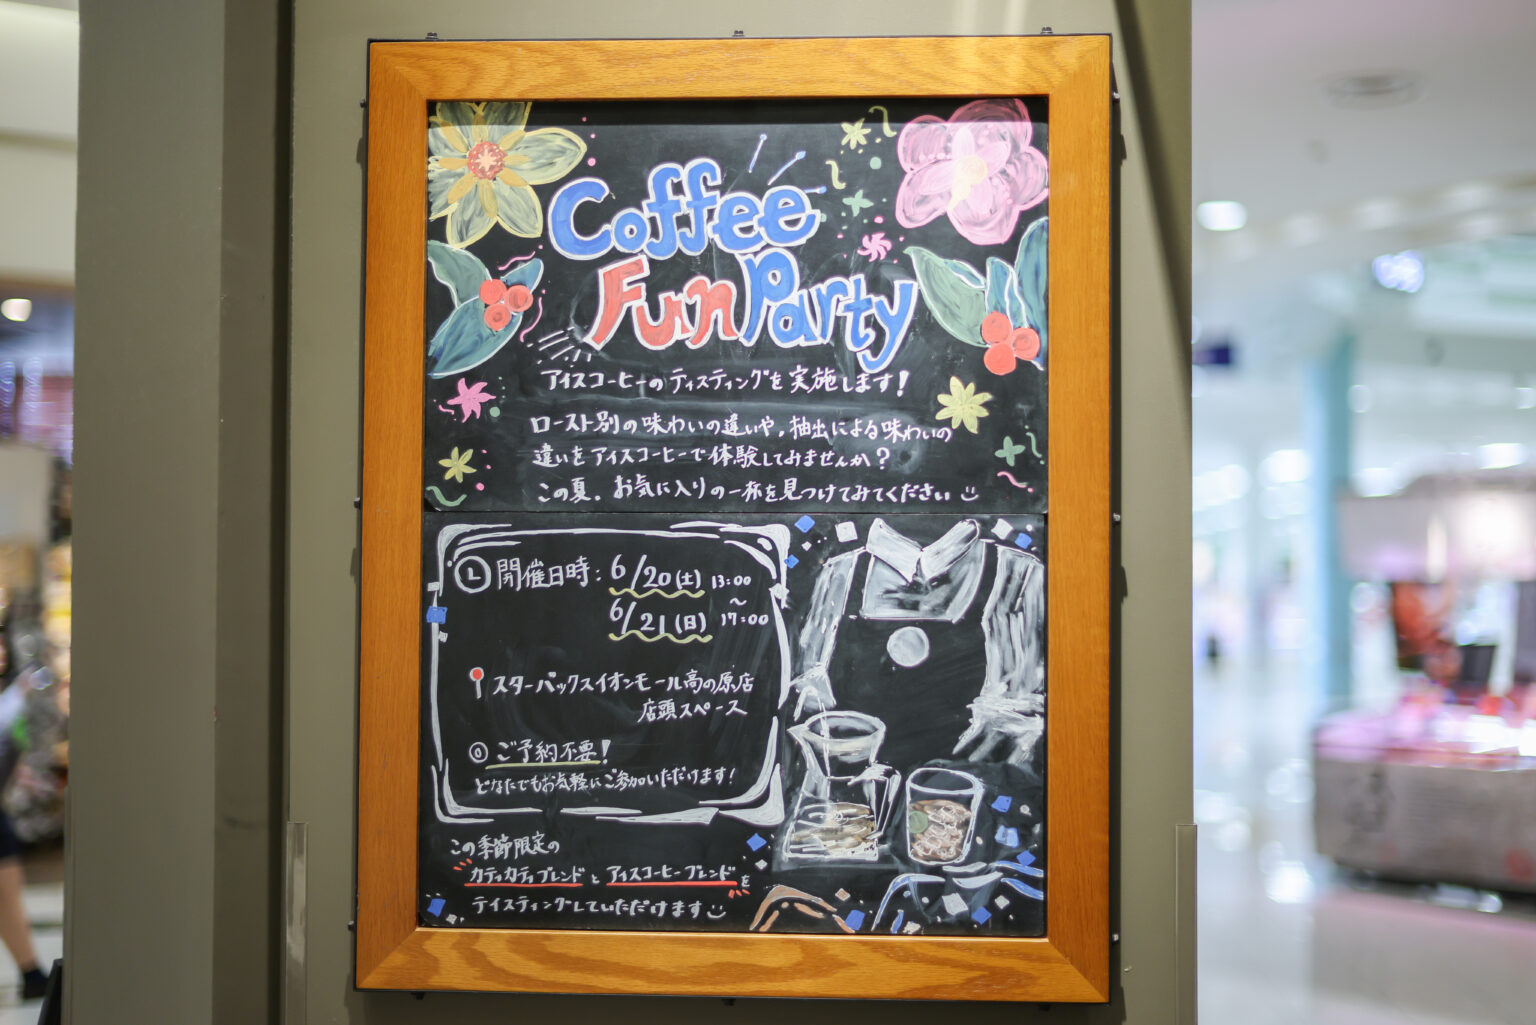 Coffee
Fun Party
アイスコーヒーのテイスティングを実施します!
ロースト別の味わいの違いや、抽出による味わいの
違いをアイスコーヒーで体験してみませんか?
この夏、お気に入りの一杯を見つけてみてください
開催日時: 6/20(土) 13:00
〜
6/21(日) 17:00
スターバックスイオンモール高の原店
店頭スペース
ご予約不要!
どなたでもお気軽にご参加いただけます!
この季節限定の
カティカティブレンドとアイスコーヒーブレンドを
テイスティングしていただけます